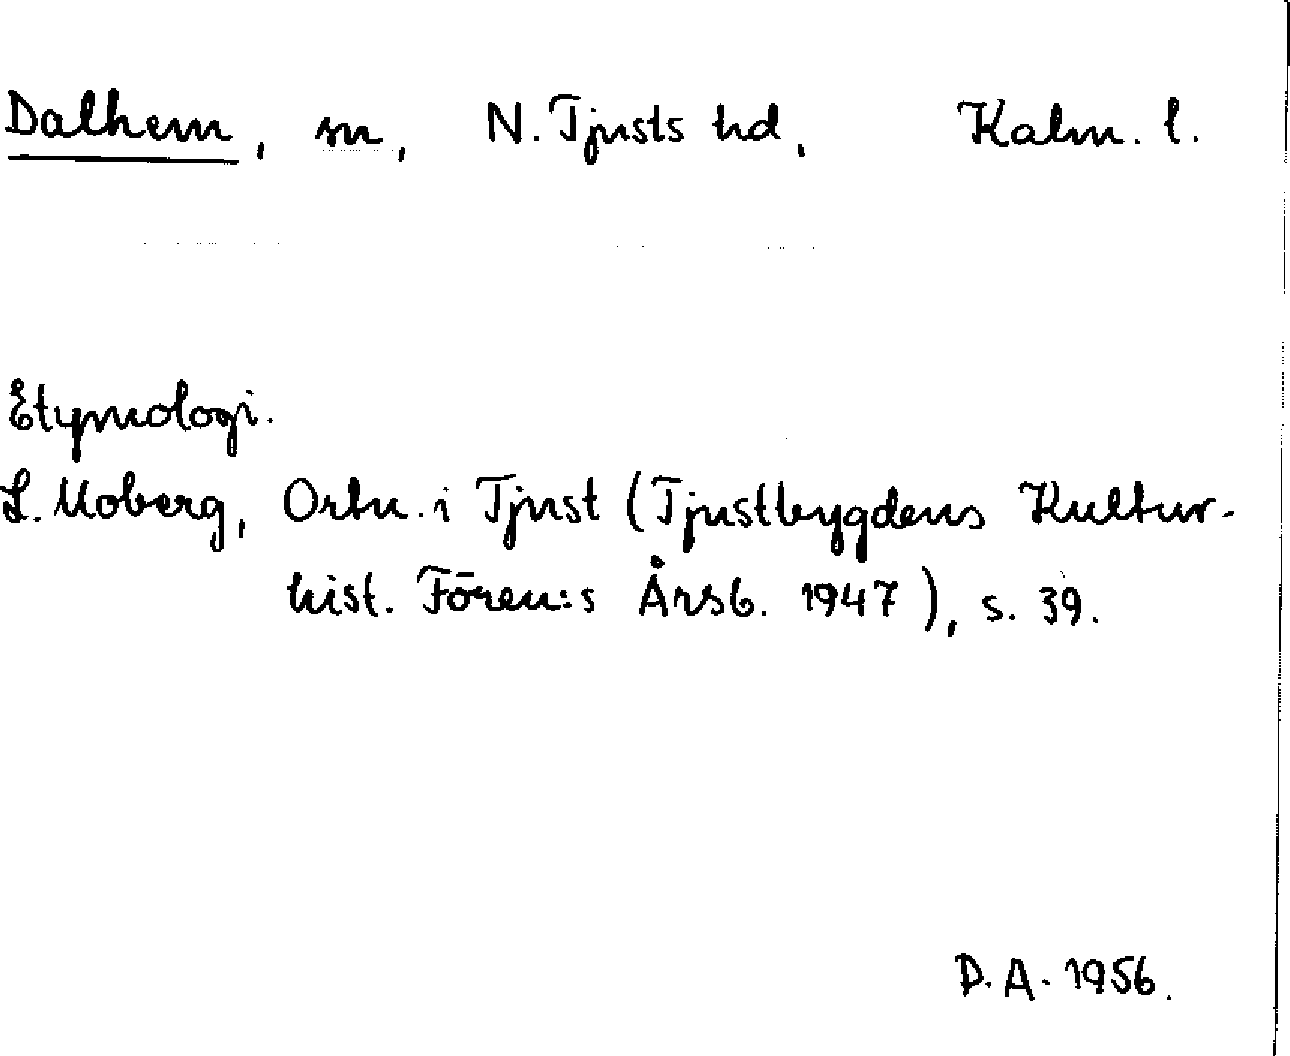 Dalhem, sn, N. Tjusts hd, Kalm. l.
Etymologi.
L. Moberg, Ortn. i Tjust (Tjustbygdens Kultur-
hist. Fören:s Årsb. 1947), s. 39.
D. A. 1956.